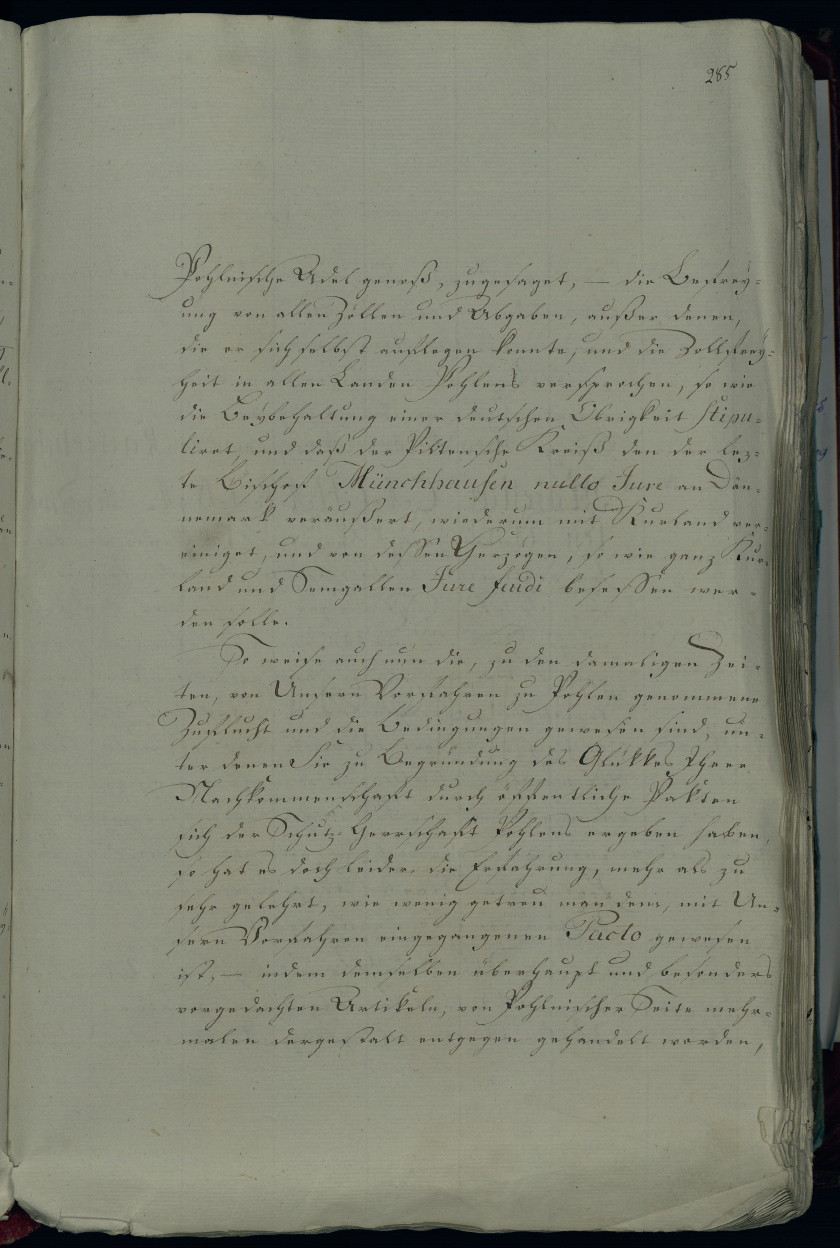 285
Pohlnische Adel genoß, zugesaget, — die Befrey-
ung von allen Zöllen und Abgaben, außer denen,
die er sich selbst auflegen konnte, und die Zollfrey-
heit in allen Landen Pohlens versprochen, so wie
die Beybehaltung einer deutschen Obrigkeit stipu-
liret, und daß der Piltensche Kreiß den der lez-
te Bischof Münchhausen nullo Jure an Dän-
nemark veräußert, wiederum mit Kurland ver-
einiget, und von dessen Herzögen, so wie ganz Kur-
land und Semgallen Jure feudi besessen wer-
den solle.
So weise auch nun die, zu den damaligen Zei-
ten, von Unsern Vorfahren zu Pohlen genommene
Zuflucht und die Bedingungen gewesen sind, un-
ter denen Sie zu Begründung des Glükkes Ihrer
Nachkommenschaft durch öffentliche Pakten
sich der Schutz-Herrschaft Pohlens ergeben haben,
so hat es doch leider die Erfahrung, mehr als zu
sehr gelehrt, wie wenig getreu man dem, mit Un-
sern Vorfahren eingegangenen Pacto gewesen
ist, — indem demselben überhaupt und besonders
vorgedachten Artikeln, von Pohlnischer Seite mehr-
malen dergestalt entgegen gehandelt worden,